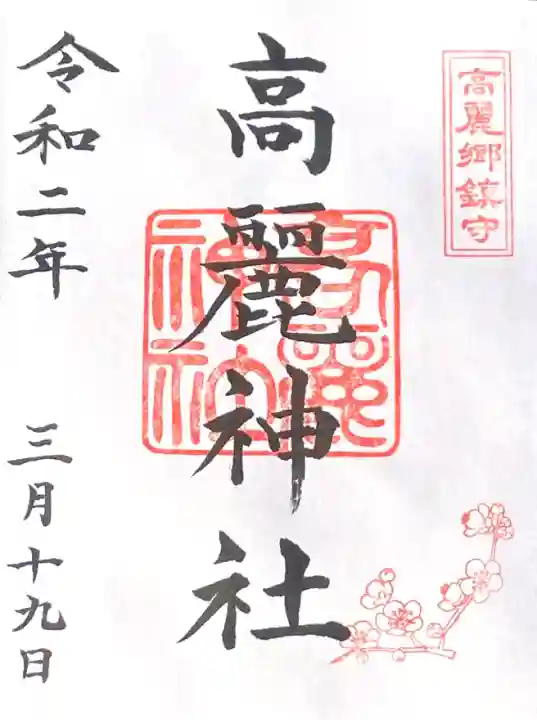 高麗郷鎮守
高麗神社
令和二年 三月十九日
高麗神社